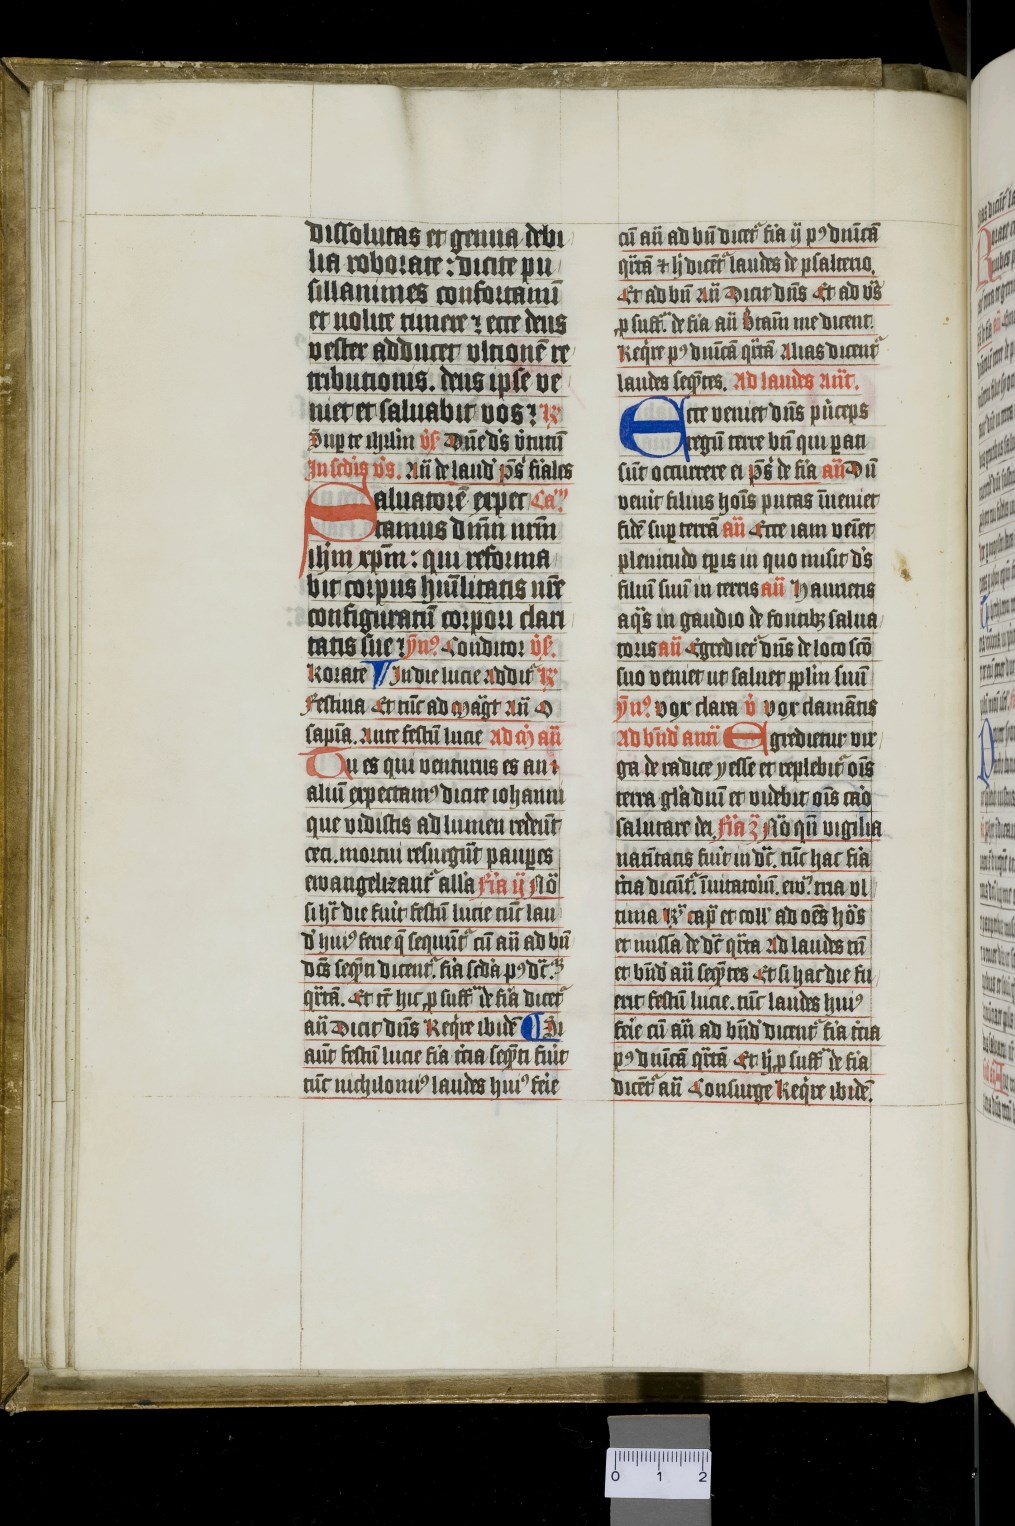 dissolutas et genua debi
lia roborate : dicite pu
sillanimes confortamī
et nolite timere ⁊ ecce deus
vester adducet vltionē re
tributionis. deus ipse ve
niet et saluabit vos ⁊ R̷
Sup te ihrlm v̄s Dn̄e ds v̄tutū
In scd̄is v̄s. Aū de laud ps fīales
Saluatorē expec Cam
tamus dn̄m nrm̄
ihm xpm̄ : qui reforma
bit corpus hūilitatis nr̄e
configuratū corpori clari
tatis sue ⁊ yn̄9 Conditor v̄s.
Rorate ¶ In die lucie Addit R̷
Festina Et tūc ad mag̅t Aū O
sapīa. Ante festū lucie Ad m̄ aū
Tu es qui venturus es an
aliū expectam9 dicite iohanni
que vidistis ad lumen redeūt
ceci. mortui resurgūt paupes
ewangelizant alla Fīa ij Nō
si hc̄ die fuīt festū lucie tūc lau
d hui9 ferie q̄ sequūt cū aū ad bn̄
dcs̄ seqn̄ti dicent fīa scd̄a p9 dc̄
qr̄tā. Et tc̄ hic p suff de fīa dicet
aū Dicit dn̄s Req̄re ibidē ¶ Si
aūt festū lucie fīa tcīa seqn̄ti fuīt
tūc nichilomi9 laudes hui9 feīe
cū aū ad bn̄ dicet fīa ij p9 dnīcā
qr̄tā ⁊ h̄ dicēt laudes de psalterio.
Et ad bn̄ Aū Dicit dn̄s Et ad v̄s
p suff de fīa aū Ostam me dicent.
Req̄re p9 dnīcā qr̄tā Alias dicent
laudes seqn̄tes. Ad laudes Aūt.
Ecce veniet dn̄s pīnceps
regū terre bn̄ qui pati
sūt occurrere ei ps̄ de fīa aū Dū
venit filius hoīs putas īueniet
fidē sup terrā aū Ecce iam vēnet
plenitudo tp̄is in quo misit ds
filiū suū in terris aū Haurietis
aq̄s in gaudio de fontibꝫ salua
toris aū Egrediet dn̄s de loco scō
suo veniet ut saluet pplm̄ suū
yn̄9 vox clara v̄ vox clamātis
Ad bn̄d antī Egredietur vir
ga de radice yesse et replebit oīs
terra gla dn̄i et videbit oīs caō
salutare dei Fīa ꝫ Nō qn̄ vigilia
natītatis fuīt in dc̄. tūc hac fīa
tcīa dicūt īuitatoiū. ew9 tria vl
tima R̷ cap et coll ad oēs hōs
et missā de dc̄ qr̄ta Ad laudes tn̄
et bn̄d aū seqn̄tes Et si hac die fu
erit festū lucie. tunc laudes hui9
feīe cū aū ad bn̄d dicent fīa tcīa
p9 dnīcā qr̄tā Et h̄ p suff de fīa
dicēt aū Consurge Req̄re ibidē.